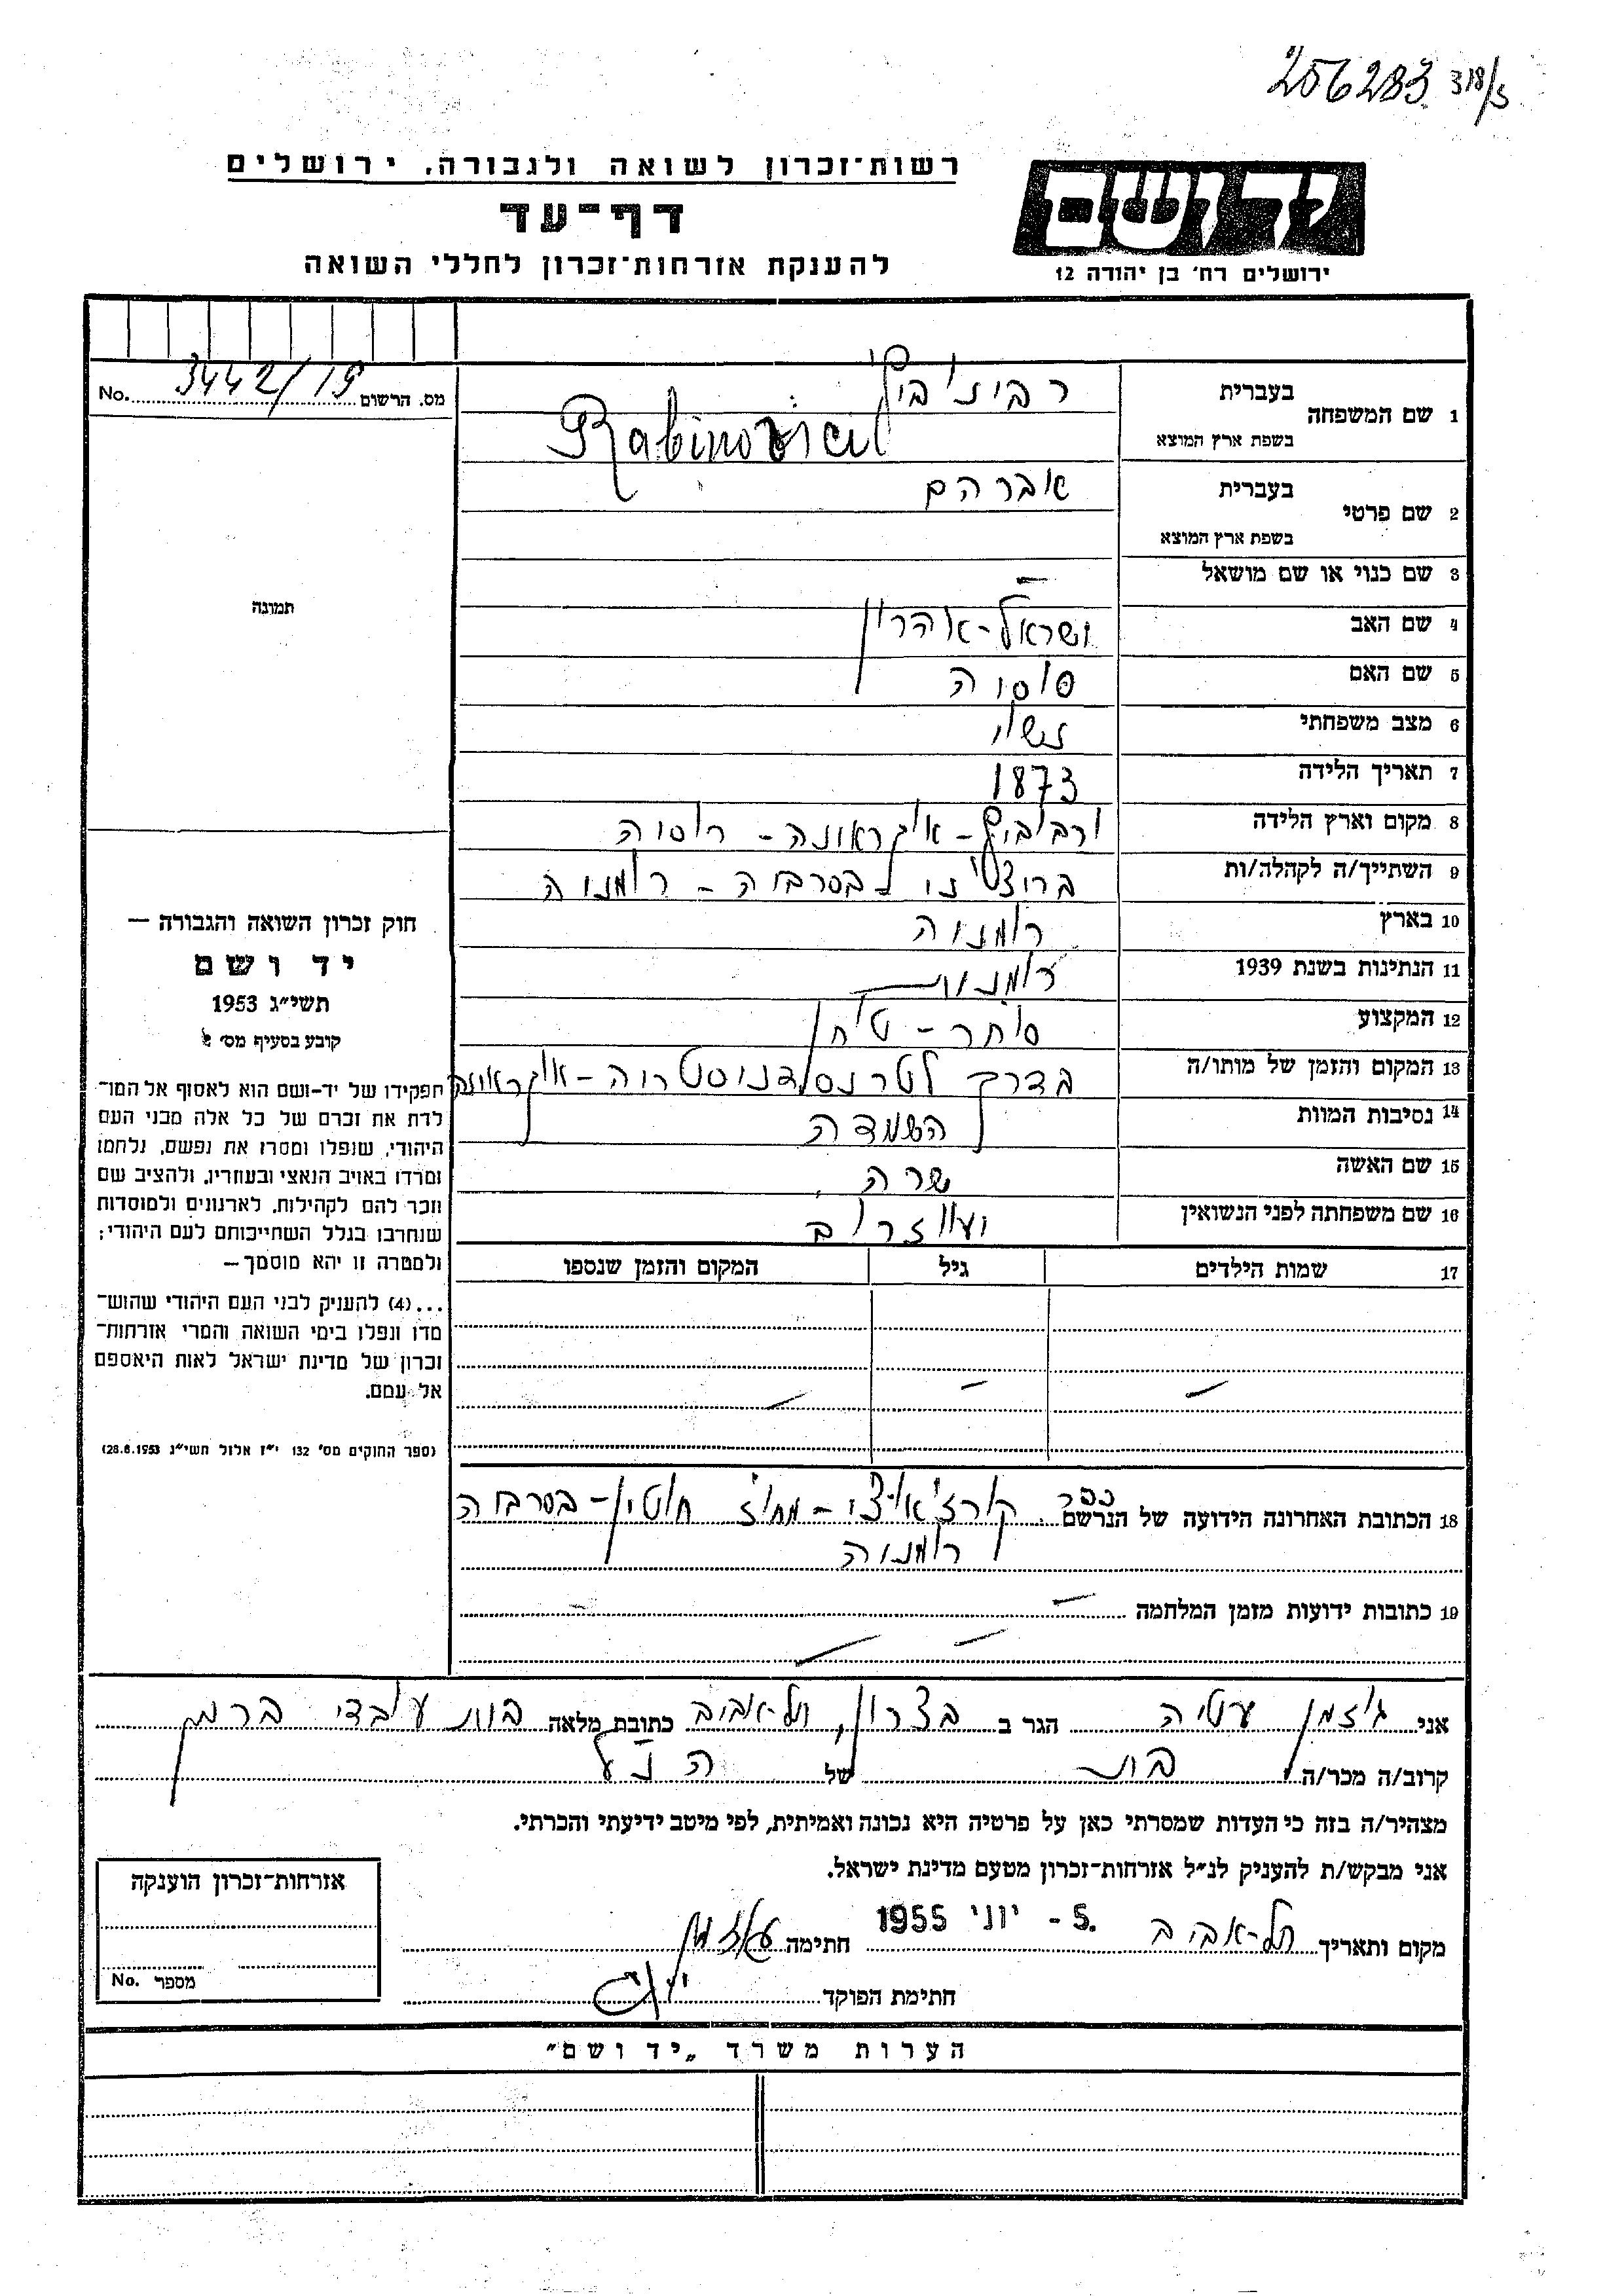 256283 318/5
רשות־זכרון לשואה ולגבורה, ירושלים
יד ושם
דף־עד
להענקת אזרחות־זכרון לחללי השואה
ירושלים רח׳ בן יהודה 12
מס. הרשום 3442/19 No.
1 שם המשפחה
בעברית
בשפת ארץ המוצא
Rabinovici
2 שם פרטי
בעברית אברהם
בשפת ארץ המוצא
3 שם כנוי או שם מושאל –
תמונה
4 שם האב ישראל-אהרון
5 שם האם סוסיה
6 מצב משפחתי נשוי
7 תאריך הלידה 1873
8 מקום וארץ הלידה אוקראינה - רוסיה
9 השתייך/ה לקהלה/ות בסרביה - רומניה
10 בארץ רומניה
11 הנתינות בשנת 1939 רומנית
12 המקצוע סוחר - טוחן
13 המקום והזמן של מותו/ה בדרך לטרנסדניסטריה - אוקראינה
14 נסיבות המוות השמדה
15 שם האשה שרה
16 שם משפחתה לפני הנשואין
17 שמות הילדים גיל המקום והזמן שנספו
– – –
חוק זכרון השואה והגבורה —
יד ושם
תשי״ג 1953
קובע בסעיף מס׳
תפקידו של יד-ושם הוא לאסוף אל המו־
לדת את זכרם של כל אלה מבני העם
היהודי, שנפלו ומסרו את נפשם, נלחמו
ומרדו באויב הנאצי ובעוזריו, ולהציב שם
וזכר להם לקהילות, לארגונים ולמוסדות
שנחרבו בגלל השתייכותם לעם היהודי;
ולמטרה זו יהא מוסמך —
...(4) להעניק לבני העם היהודי שהוש־
מדו ונפלו בימי השואה והמרי אזרחות־
זכרון של מדינת ישראל לאות היאספם
אל עמם.
(ספר החוקים מס׳ 132 י״ז אלול תשי״ג 28.8.1953)
18 הכתובת האחרונה הידועה של הנרשם כפר מחוז חוטין - בסרביה
רומניה
19 כתובות ידועות מזמן המלחמה –
– –
אני גוזמן עטיה הגר ב ביצרון, תל-אביב כתובת מלאה
קרוב/ה מכר/ה בת של הנ״ל
מצהיר/ה בזה כי העדות שמסרתי כאן על פרטיה היא נכונה ואמיתית, לפי מיטב ידיעתי והכרתי.
אני מבקש/ת להעניק לנ״ל אזרחות־זכרון מטעם מדינת ישראל.
מקום ותאריך תל-אביב 5 - יוני 1955 חתימה
חתימת הפוקד
אזרחות־זכרון הוענקה
מספר No.
הערות משרד „יד ושם״